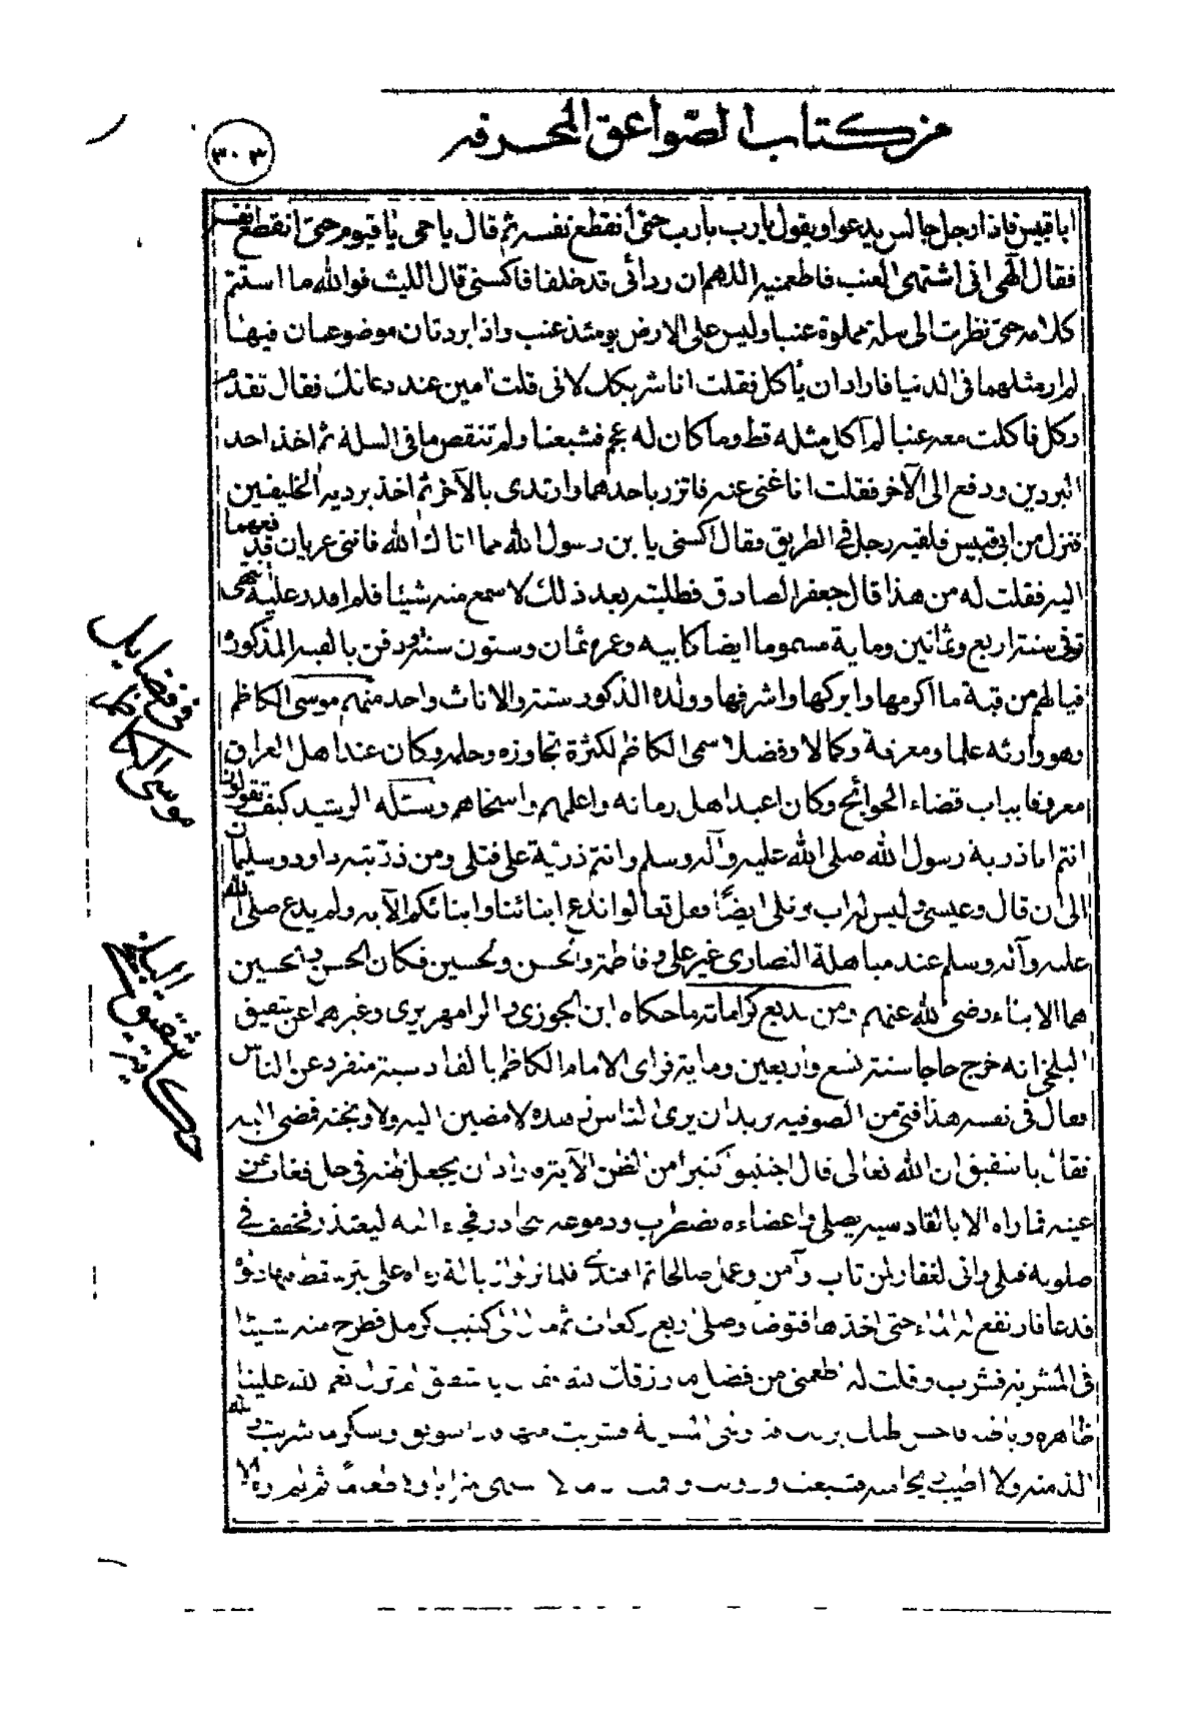 من كتاب الصواعق المحرقه
٣٠٣
ابا قبيس فاذا رجل جالس يدعوا ويقول يا رب يا رب حتى انقطع نفسه ثم قال يا حى يا قيوم حتى انقطع نفسه
فقال الهى انى اشتهى العنب فاطعمنيه اللهم ان ردائى قد خلقا فاكسنى قال الليث فوالله ما استتم
كلامه حتى نظرت الى سلة مملوة عنبا وليس على الارض يومئذ عنب واذا بردتان موضوعتان فيهما
لم ار مثلهما فى الدنيا فاراد ان يأكل فقلت انا شريكك لانى قلت امين عند دعائك فقال تقدم
وكل فاكلت معه عنبا لم آكل مثله قط وما كان له عجم فشبعنا ولم تنقص ما فى السلة ثم اخذ احد
البردين ودفع الى الآخر فقلت انا غنى عنه فاتزر باحدهما وارتدى بالآخر ثم اخذ برديه الخليفين
فنزل من ابى قبيس فلقيه رجل فى الطريق وقال اكسنى يا بن رسول الله مما اتاك الله فاننى عريان فدفعهما
اليه فقلت له من هذا قال جعفر الصادق فطلبته بعد ذلك لاسمع منه شيئا فلم اقدر عليه انتهى
توفى سنة اربع وثمانين وماية مسموما ايضا كابيه وعمره ثمان وستون سنة ودفن بالقبر المذكور
فيا لهم من قبة ما اكرمها وابركها واشرفها وولده الذكور ستة والاناث واحد منهم موسى الكاظم
وهو وارثه علما ومعرفة وكمالا وفضلا سمى الكاظم لكثرة تجاوزه وحلمه وكان عند اهل العراق
معروفا بباب قضاء الحوائج وكان اعبد اهل زمانه واعلمهم واسخاهم وسئله الرشيد كيف تقولون
انتم انا ذرية رسول الله صلى الله عليه وآله وسلم وانتم ذرية على فتلى ومن ذريته داود وسليمان
الى ان قال وعيسى وليس له اب وتلى ايضا فقل تعالوا ندع ابنائنا وابنائكم الآيه ولم يدع صلى الله
عليه وآله وسلم عند مباهلة النصارى غير على وفاطمة والحسن والحسين فكان الحسن والحسين
هما الابناء رضى الله عنهم ومن بديع كراماته ما حكاه ابن الجوزى والرامهرمزى وغيرهما عن شقيق
البلخى انه خرج حاجا سنة تسع واربعين وماية فراى الامام الكاظم بالقادسية منفرد عن الناس
فقال فى نفسه هذا فتى من الصوفيه يريد ان يرى الناس زهده لامضين اليه ولاوبخنه فمضى اليه
فقال يا شقيق ان الله تعالى قال اجتنبوا كثيرا من الظن الآيه واراد ان يجعل ظنه فى حل فغاب عن
عينه فما راه الا بالقادسيه يصلى واعضاءه تضطرب ودموعه تتحادر فجاء اليه ليعتذر فخفف فى
صلوته فتلى وانى لغفار لمن تاب وآمن وعمل صالحا ثم اهتدى فلما نزلوا زبالة راه على بئر سقط فيها دلوه
فدعا فارتفع له الماء حتى اخذها فتوضأ وصلى اربع ركعات ثم مال الى كثيب رمل فطرح منه شيئا
فى المشربة فشرب وقلت له اطعمنى من فضل ما رزقك الله فقال يا شقيق لم تزل نعم الله علينا
ظاهره وباطنه فاحسن ظنك بربك فناولنى المشربة فشربت منها فاذا سويق وسكر ما شربت والله
الذ منه ولا اطيب
فى فضايل موسى الكاظم
حكايت شقيق البلخى